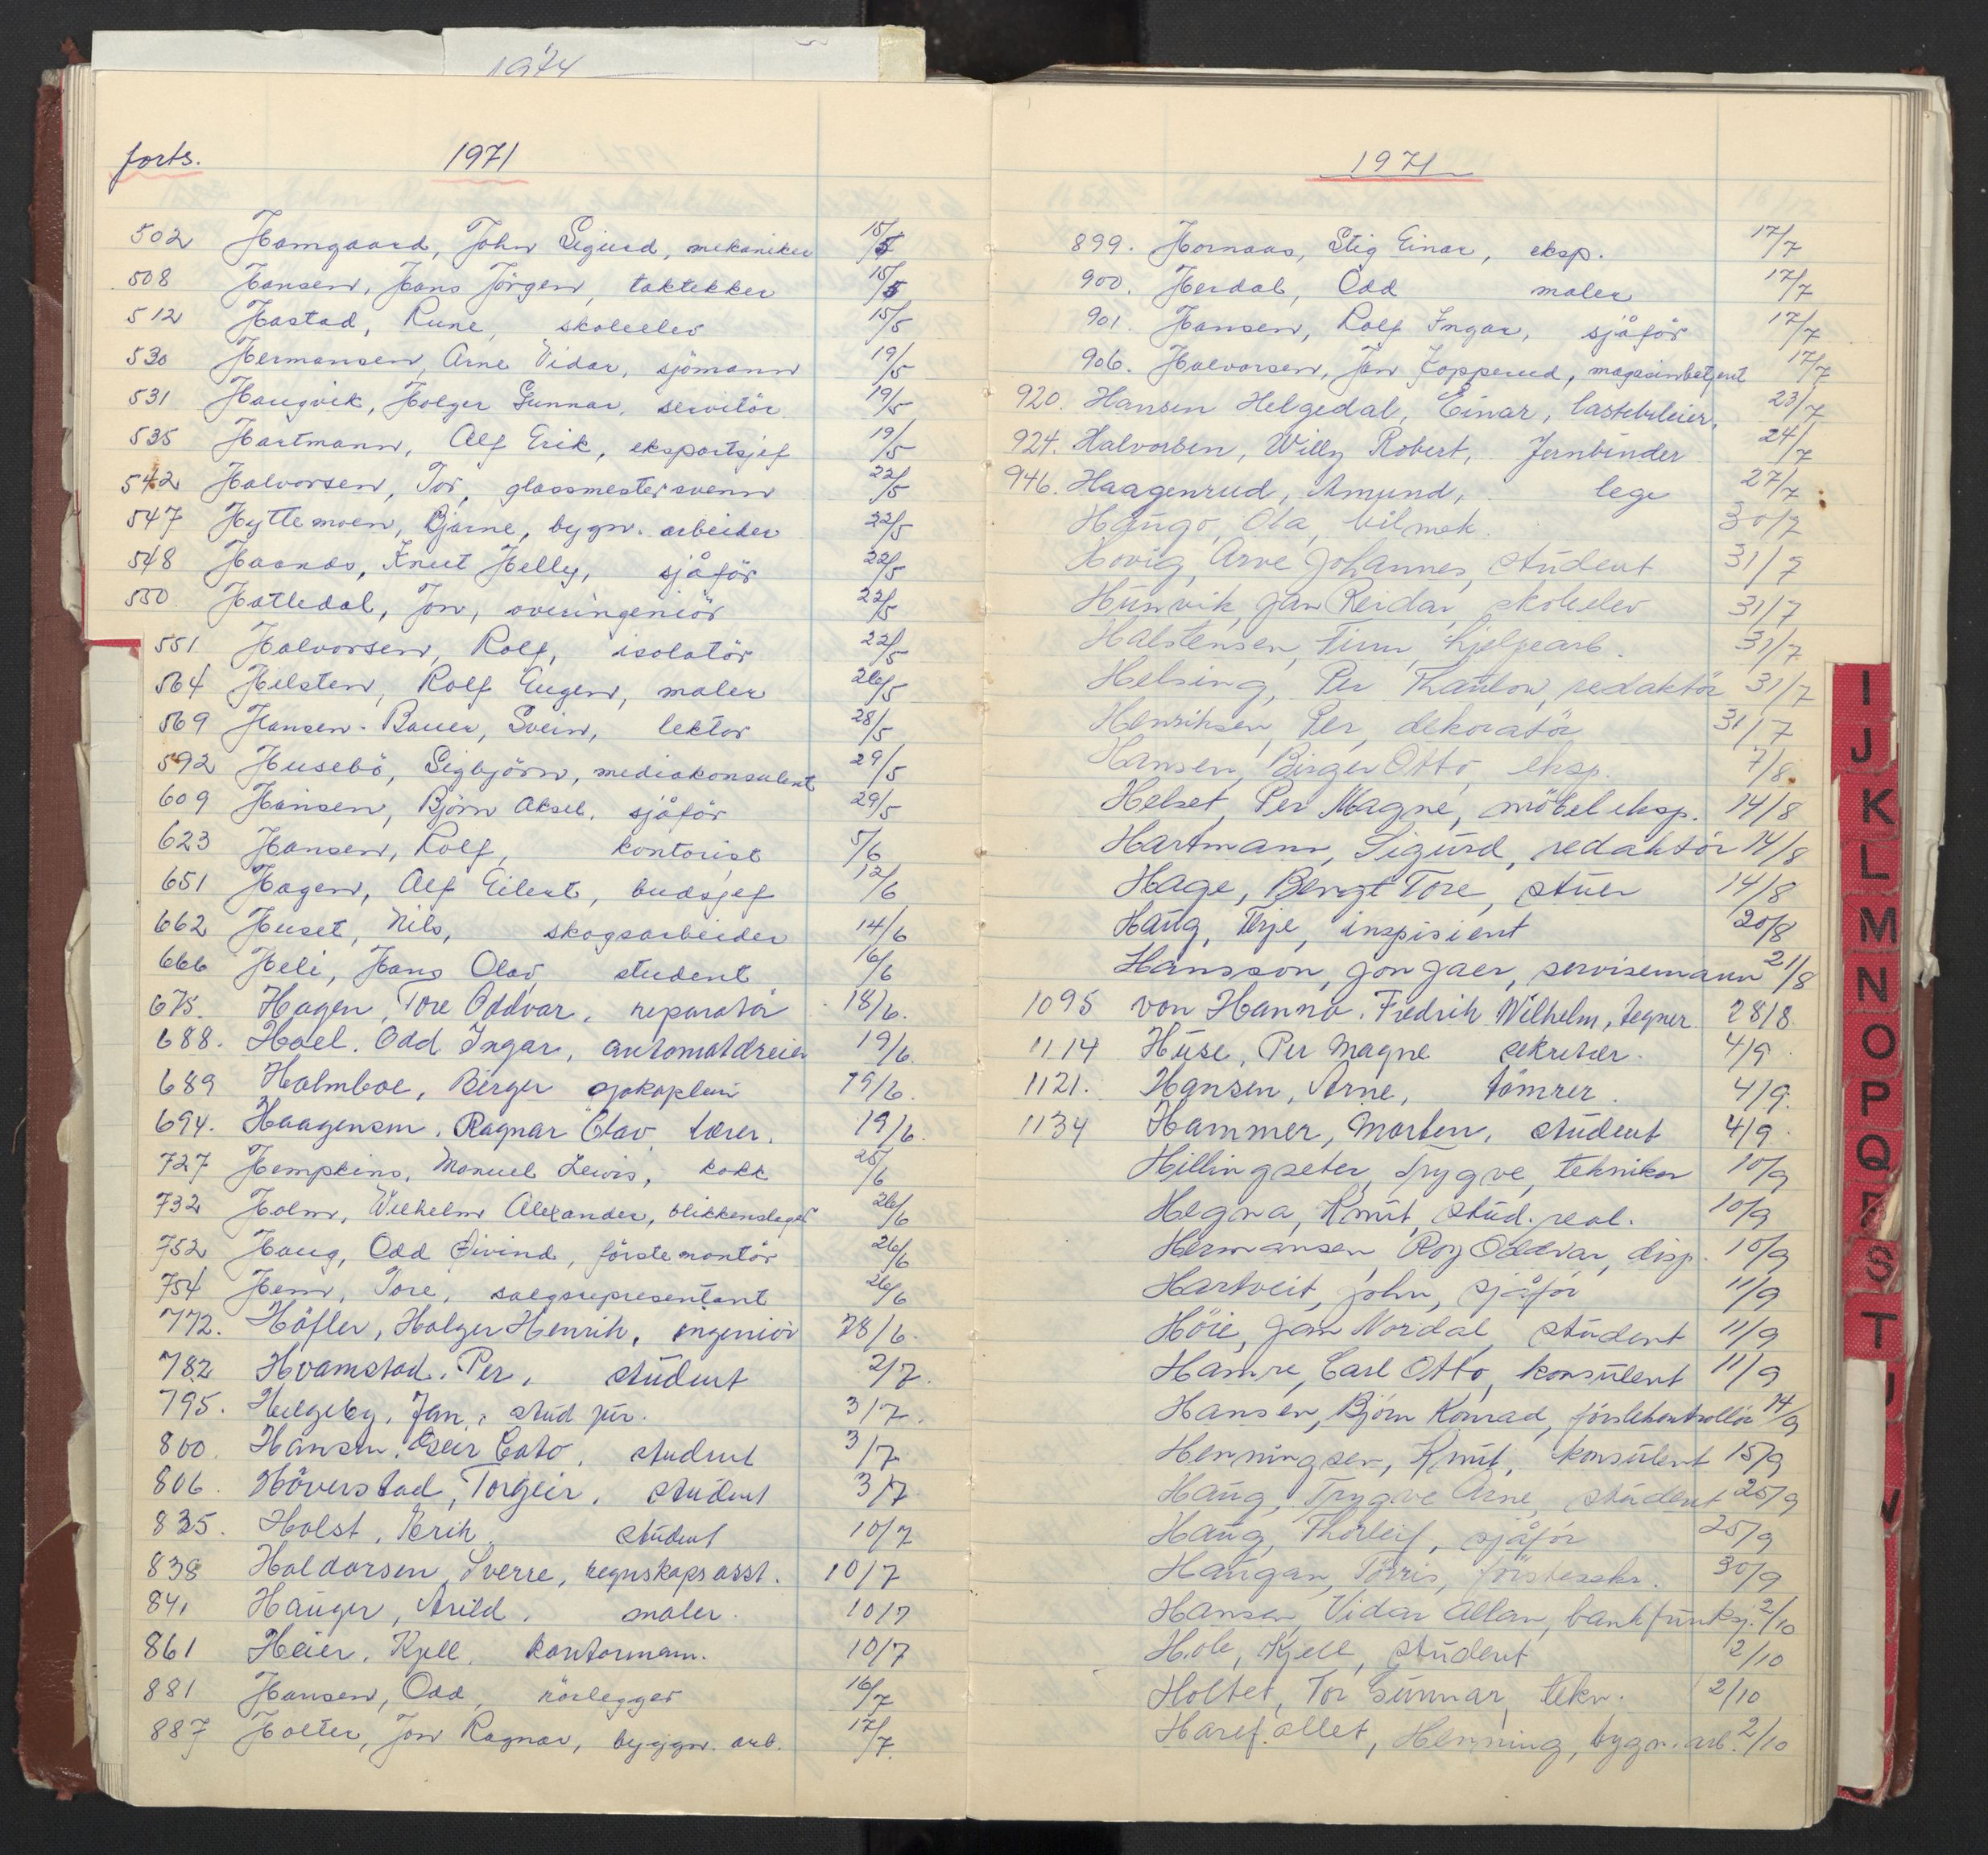 1974
forts. 1971
502 Hamgaard, John Sigurd, mekaniker 15/5
508 Hansen, Hans Jörgen, taktekker 15/5
512 Hastad, Rune, skoleelev 15/5
530 Hermansen, Arne Vidar, sjömann 19/5
531 Haugvik, Holger Gunnar, servitör 19/5
535 Hartmann, Alf Erik, eksportsjef 19/5
542 Halvorsen, Tor, glassmestersvenn 22/5
547 Hyttemoen, Bjarne, bygn. arbeider 22/5
548 Haanes, Knut Helly, sjåför 22/5
550 Hatledal, Jon, overingeniör 22/5
551 Halvorsen, Rolf, isolatör 22/5
564 Hilsten, Rolf Eugen, maler 26/5
569 Hansen-Bauer, Svein, lektor 28/5
592 Husebö, Sigbjörn, mediakonsulent 29/5
609 Hansen, Björn Aksel, sjåför 29/5
623 Hansen, Rolf, kontorist 5/6
651 Hagen, Alf Eilert, budsjef 12/6
662 Huset, Nils, skogsarbeider 14/6
666 Heli, Hans Olav, student 16/6
675. Hagen, Tore Oddvar, reparatör 18/6.
688. Hoel. Odd Ingar, automatdreier 19/6.
689 Holmboe, Birger sjökaptein 19/6.
694. Haagensen, Ragnar Olav lærer. 19/6.
727 Hempkins, Manuel Lewis, kokk 25/6
732 Holm, Wilhelm Alexander, blikkenslager 26/6
752 Haug, Odd Øivind, förstemontör 26/6
754 Hem, Tore, salgsrepresentant 26/6
772. Höfler, Holger Henrik, ingeniör 28/6.
782 Hvamstad, Per, student 2/7.
795. Helgeby, Jan, stud jur. 3/7.
800. Hansen, Geir Cato, student 3/7
806. Höverstad, Torgeir, student 3/7
835. Holst, Erik, student 10/7
838 Haldorsen, Sverre, regnskapsasst. 10/7
841 Hauger, Arild, maler. 10/7
861 Heier, Kjell, kontormann. 10/7
881 Hansen, Odd, rörlegger 16/7
887 Holter, Jon Ragnar, byggn. arb. 17/7.
1971
899. Hornaas, Stig Einar, eksp. 17/7
900. Herdal, Odd maler 17/7
901. Hansen, Rolf Ingar, sjåför 17/7
906. Halvorsen, Jan Kopperud, magasinbetjent 17/7
920. Hansen Helgedal, Einar, lastebileier, 23/7
924. Halvorsen, Willy Robert, Jernbinder 24/7
946. Haagenrud, Amund, lege 27/7
Haugo, Ola, bilmek. 30/7
Hovig, Arve Johannes, student 31/7
Hunvik, Jan Reidar, skoleelev 31/7
Halstensen, Finn, hjelpearb. 31/7
Helsing, Per Thaulow, redaktör 31/7
Henriksen, Per, dekoratör 31/7
Hansen, Birger Otto, eksp. 7/8
Helset, Per Magne, möbeleksp. 14/8
Hartmann, Sigurd, redaktör 14/8
Hage, Bengt Tore, stuer 14/8
Haug, Terje, inspisient 20/8
Hansson, Jon Jaer, servisemann 21/8
1095 von Hanno, Fredrik Wilhelm, tegner. 28/8.
1114 Huse, Per Magne sekretær. 4/9.
1121. Hansen, Arne, tömrer. 4/9.
1134 Hammer, Morten, student 4/9.
Hillingseter, Trygve, tekniker 10/9
Hegna, Knut, stud. real. 10/9
Hermansen, Roy Oddvar, disp. 10/9
Hartveit, John, sjåför 11/9
Höie, Jan Nordal, student 11/9
Hamre, Carl Otto, konsulent 11/9
Hansen, Björn Konrad, förstekontrollör 14/9
Henningsen, Knut, konsulent 15/9
Haug, Trygve Arne, student 25/9
Haug, Thorleif, sjåför 25/9
Haugan, Törris, förstesekr. 30/9
Hansen, Vidar Allan, bankfunksj. 2/10
Hole, Kjell, student 2/10
Holtet, Tor Gunnar, tekn. 2/10
Harefallet, Henning, bygn.arb. 2/10
I
J
K
L
M
N
O
P
Q
R
S
T